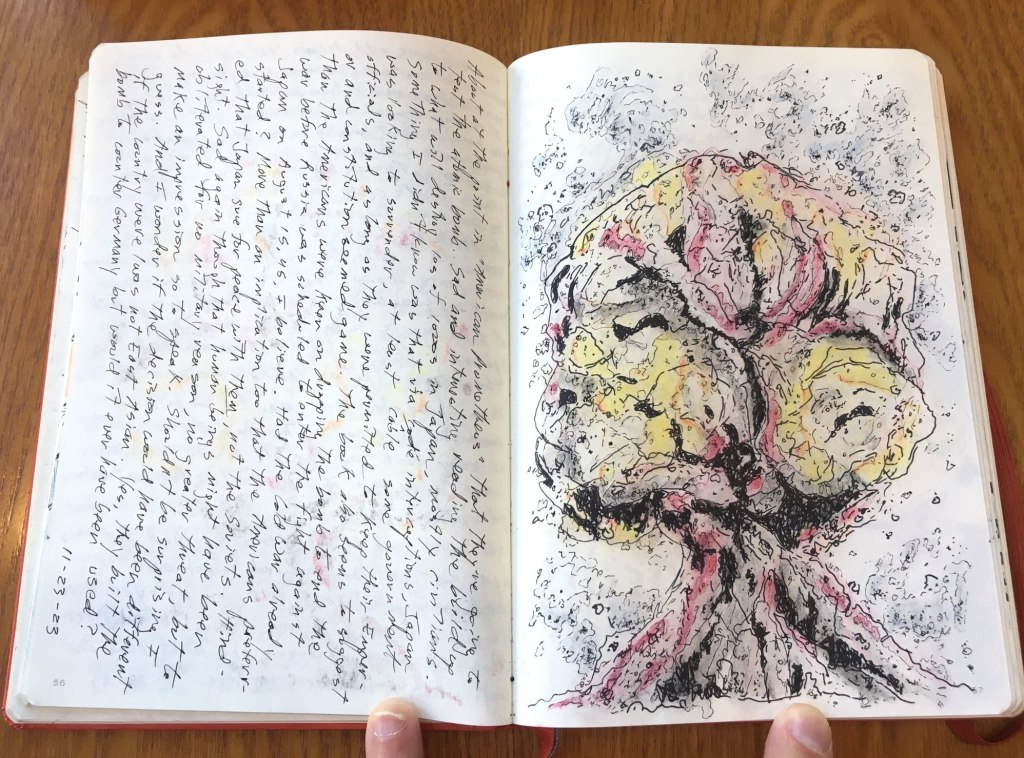 About at the point in "American Prometheus" that they're going to
test the atomic bomb. Sad and interesting reading, the buildup
to what will destroy lots of in Japan –
Something I didn't know was that via back Japan
was looking to surrender, at least some
officials and as long as they were permitted to keep their Emper-
or and constitution seemed game. The book also serves to suggest
than the Americans were keen on dropping the bomb to end the
war before Russia was scheduled to enter the fight against
Japan on August 15, I believe. Had the Cold War already
started? More than an implication too that the Americans preferr-
ed that Japan sue for peace with them not the Soviets. Hind-
sight. Sad again though that human beings might have been
obliterated for no military reason, no greater threat, but to
make an impression so to speak. Shouldn't be surprising, I
guess. And I wonder if the decision would have been different
if the country were/was not East Asian. Yes, they built the
bomb to counter Germany but would it ever have been used?
11-23-23
86